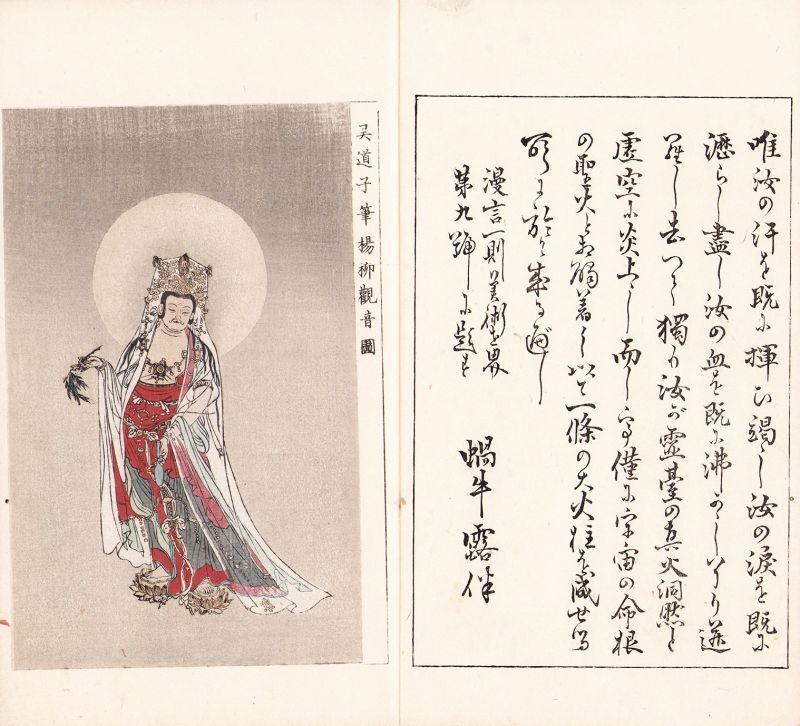 唯汝の汗を既に揮ひ竭し汝の涙を既に
瀝らし盡し汝の血を既に沸かし了り迸
し去つて獨り汝が靈臺の真火洞然と
虚空に炎上し而して僅に宇宙の命根
の聖火と相觸着し以て一條の大火柱を成せる
に於て
漫言一則美術世界
第九號に題す
蝸牛露伴
吴道子筆楊柳觀音圖